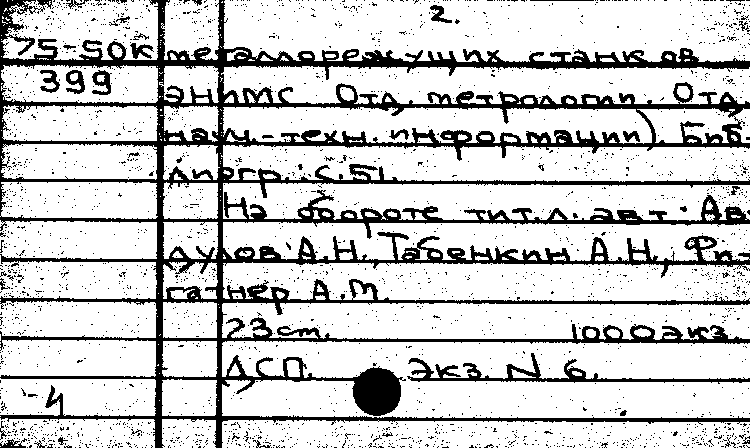 2.
75-50к металлорежущих станков
399 ЭНИМС Отд. метрологии. Отд.
науч.-техн. информации). Биб-
лиогр.: с.51.
На обороте тит.л. авт.: Ав-
дулов А.Н., Табенкин А.Н., Фи-
гатнер А.М.
23 см. 1000 экз.
ДСП. Экз. N 6.
-4